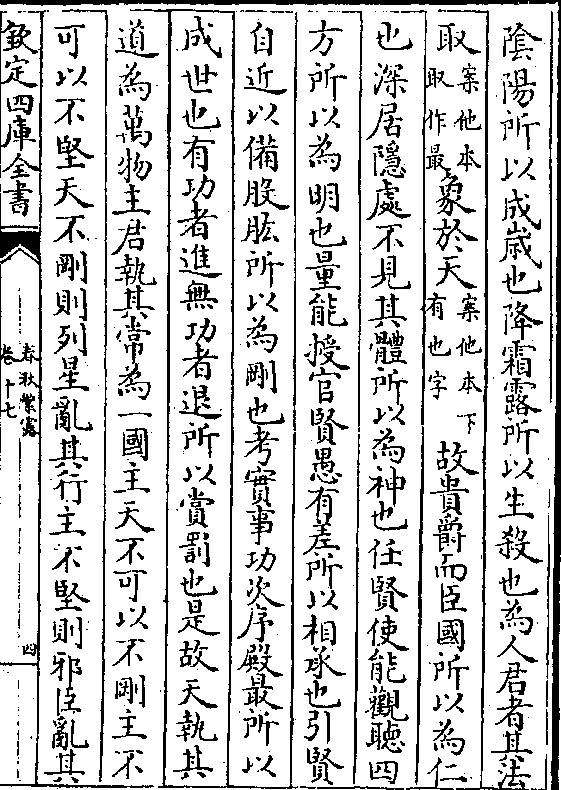 陰陽所以成歳也降霜露所以生殺也為人君者其法
取案他本取作最象於天案他本下有也字故貴爵而臣國所以為仁
也深居隱處不見其體所以為神也任賢使能觀聽四
方所以為明也量能授官賢愚有差所以相承也引賢
自近以備股肱所以為剛也考實事功次序殿最所以
成世也有功者進無功者退所以賞罰也是故天執其
道為萬物主君執其常為一國主天不可以不剛主不
可以不堅天不剛則列星亂其行主不堅則邪臣亂其
欽定四庫全書
春秋繁露
卷十七
四